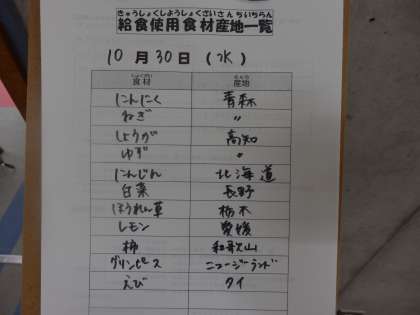 きゅうしょくしようしょくざいさんちいちらん
給食使用食材産地一覧
10月30日（水）
しょくざい さんち
食材 産地
にんにく 青森
ねぎ 〃
しょうが 高知
ゆず 〃
にんじん 北海道
白菜 長野
ほうれん草 栃木
レモン 愛媛
柿 和歌山
グリンピース ニュージーランド
えび タイ